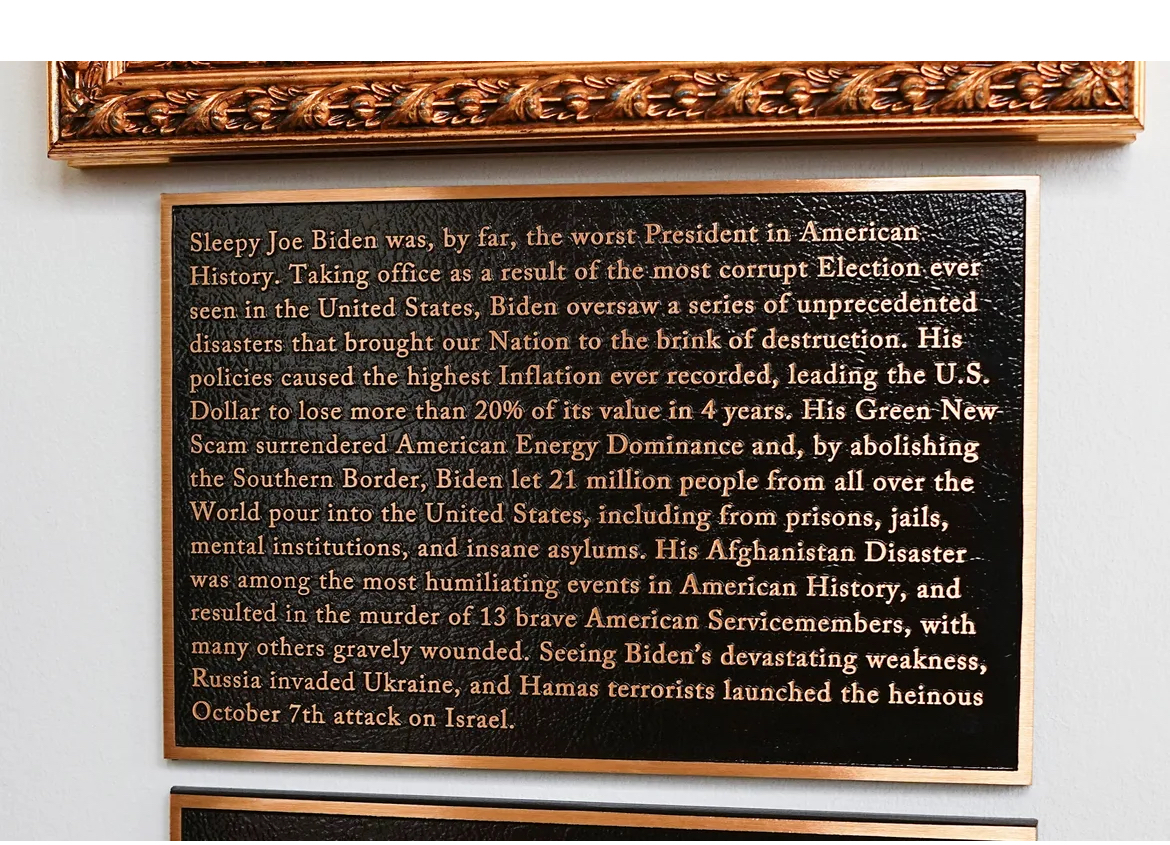 Sleepy Joe Biden was, by far, the worst President in American
History. Taking office as a result of the most corrupt Election ever
seen in the United States, Biden oversaw a series of unprecedented
disasters that brought our Nation to the brink of destruction. His
policies caused the highest Inflation ever recorded, leading the U.S.
Dollar to lose more than 20% of its value in 4 years. His Green New
Scam surrendered American Energy Dominance and, by abolishing
the Southern Border, Biden let 21 million people from all over the
World pour into the United States, including from prisons, jails,
mental institutions, and insane asylums. His Afghanistan Disaster
was among the most humiliating events in American History, and
resulted in the murder of 13 brave American Servicemembers, with
many others gravely wounded. Seeing Biden's devastating weakness,
Russia invaded Ukraine, and Hamas terrorists launched the heinous
October 7th attack on Israel.